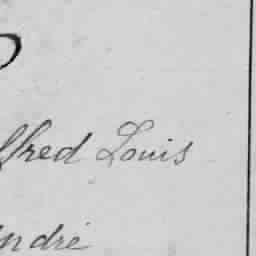 lfred Louis
ndré